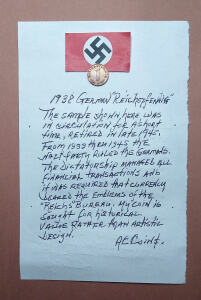 1938 GERMAN "Reichpfenning"
The sample shown here was
in circulation for a short
time, retired in late 1945.
From 1933 thru 1945 the
Nazi Party ruled the Germans.
The dictatorship managed all
financial transactions and
it was required that currency
the emblems of the
"Reichs" Bureau. My coin is
sought for historical
value rather than artistic
design.
AECoins.